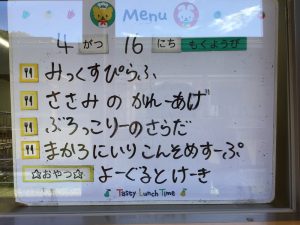 Menu
4 がつ 16 にち もくようび
みっくすぴらふ
ささみの かれーあげ
ぶろっこりーのさらだ
まかろにいりこんそめすーぷ
☆おやつ☆ よーぐるとけーき
Tasty Lunch Time